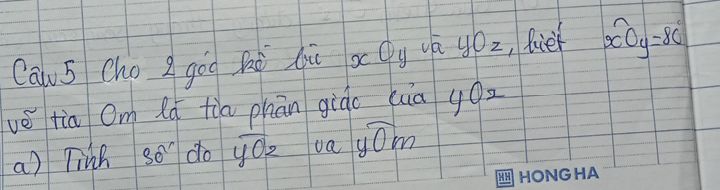 Câu 5 Cho 2 góc kề bù xOy và yOz, biết xOy = 80
vẽ tia Om là tia phân giác của yOz
a) Tính số đo yOz va yOm
HH HONG HA